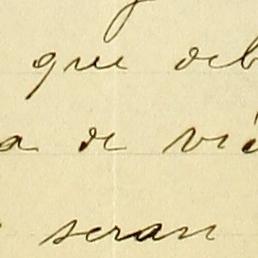 que deb
a de vi
seran